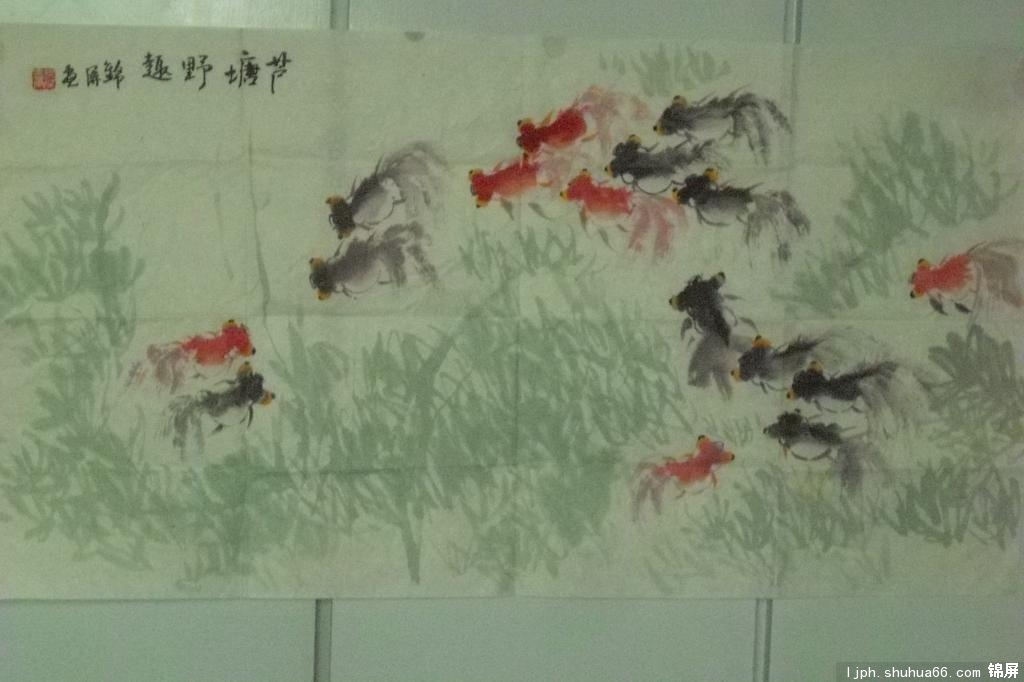 芦塘野趣 錦屏画
ljph.shuhua66.com 锦屏